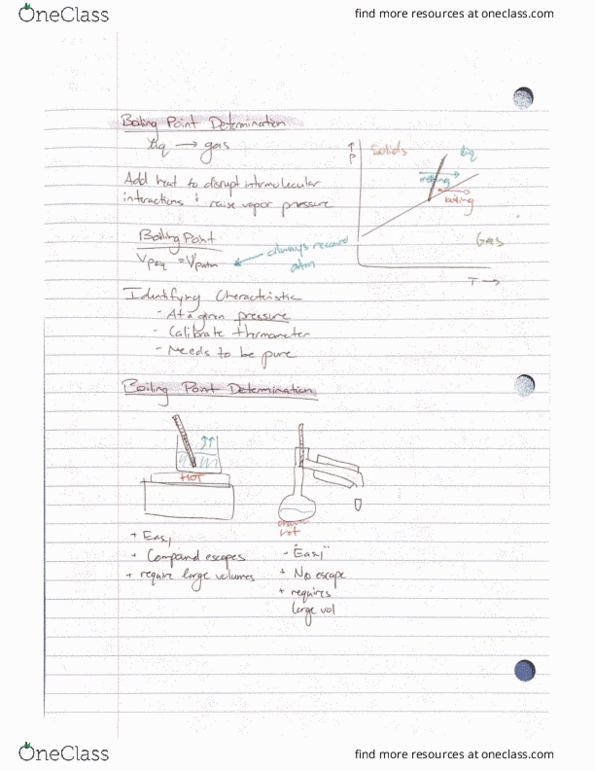 OneClass
find more resources at oneclass.com
Boiling Point Determination
Liq → gas
Add heat to disrupt intermolecular
interactions & raise vapor pressure
Boiling Point
= Vpatm
always record
atm
↑
P
Solids
Liq
melting
boiling
Gas
T →
Identifying Characteristic
- At a given pressure
- Calibrate thermometer
- Needs to be pure
Boiling Point Determination
HOT
hot
+ Easy
+ Compound escapes
+ require large volumes
- "Easy"
+ No escape
+ requires
large vol
OneClass
find more resources at oneclass.com